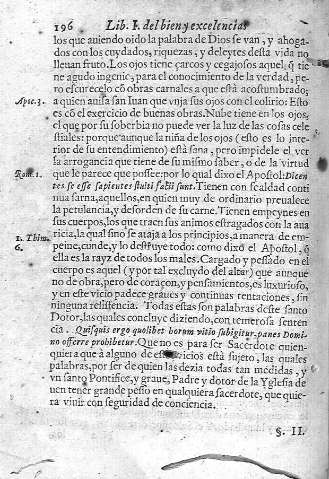 196 Lib. I. del bien y excelencias
los que auiendo oido la palabra de Dios se van, y ahoga-
dos con los cuydados, riquezas, y deleytes desta vida no
lleuan fruto. Los ojos tiene çarcos y cegajosos aquel, q̃ tie
ne agudo ingenio, para el conocimiento de la verdad, pe-
ro escurecelo cõ obras carnales a que està acostumbrado;
Apoc. 3. a quien auisa san Iuan que vnja sus ojos con el colirio: Esto
es cõ el exercicio de buenas obras. Nube tiene en los ojos,
el que por su soberbia no puede ver la luz de las cosas cele
stiales: porque aunque la niña de los ojos (esto es lo inte-
rior de su entendimiento) està sana, pero impidele el ver
la arrogancia que tiene de su mismo saber, o de la virtud
Rom. 1. que le parece que possee: por lo qual dixo el Apostol: Dicen
tes se esse sapientes stulti facti sunt. Tienen con fealdad conti
nua sarna, aquellos, en quien muy de ordinario preualece
la petulancia, y desorden de su carne. Tienen empeynes en
sus cuerpos, los que traen sus animos estragados con la aua
1. Thim. ricia, la qual sino se ataja a los principios, a manera de em-
6. peine, cunde, y lo destruye todo: como dixo el Apostol, q̃
ella es la rayz de todos los males. Cargado y pessado en el
cuerpo es aquel (y por tal excluydo del altar) que aunque
no de obra, pero de coraçon, y pensamientos, es luxurioso,
y en este vicio padece graues y continuas tentaciones, sin
ninguna resistencia. Todas estas son palabras deste santo
Dotor, las quales concluye diziendo, con temerosa senten
cia. Quisquis ergo quolibet horum vitio subigitur, panes Domi-
no offerre prohibetur. Que no es para ser Sacerdote quien-
quiera que à alguno de estos vicios està sujeto, las quales
palabras, por ser de quien las dezia todas tan medidas, y
vn santo Pontifice, y graue, Padre y dotor de la Yglesia de
uen tener grande pesso en qualquiera sacerdote, que quie-
ra viuir con seguridad de conciencia.
§. II.